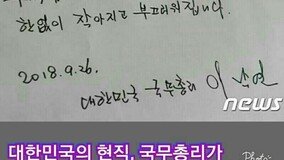 한없이 작아지고 부끄러워집니다.
2018.9.26.
대한민국 국무총리 이 낙연
news 1
대한민국의 현직, 국무총리가
Photo